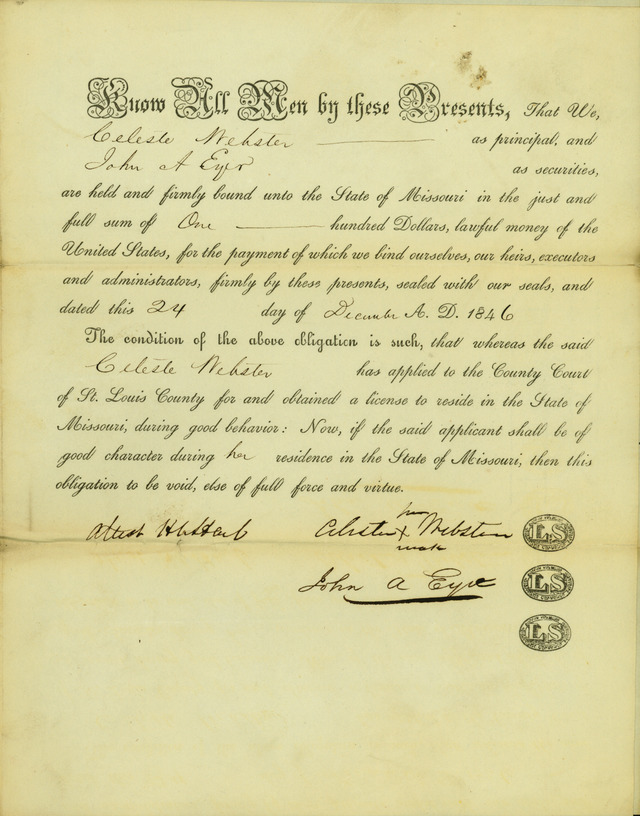 Know All Men by these Presents, That We,
Celeste Webster as principal, and
John A Eyre as securities,
are held and firmly bound unto the State of Missouri in the just and
full sum of One hundred Dollars, lawful money of the
United States, for the payment of which we bind ourselves, our heirs, executors
and administrators, firmly by these presents, sealed with our seals, and
dated this 24 day of December A. D. 1846
The condition of the above obligation is such, that whereas the said
Celeste Webster has applied to the County Court
of St. Louis County for and obtained a license to reside in the State of
Missouri, during good behavior: Now, if the said applicant shall be of
good character during her residence in the State of Missouri, then this
obligation to be void, else of full force and virtue.
her
Attest Celeste X Webster LS
mark
John A Eyre LS
LS